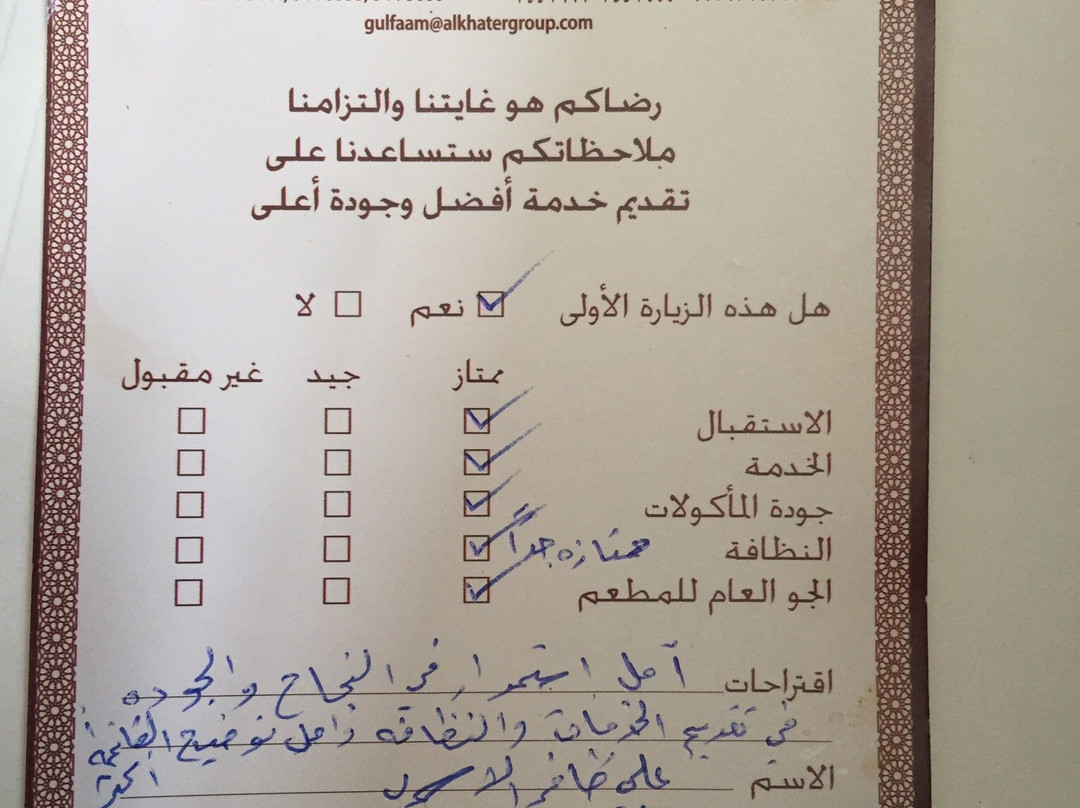 gulfaam@alkhatergroup.com
رضاكم هو غايتنا والتزامنا
ملاحظاتكم ستساعدنا على
تقديم خدمة أفضل وجودة أعلى
هل هذه الزيارة الأولى نعم لا
ممتاز جيد غير مقبول
الاستقبال
الخدمة
جودة المأكولات
النظافة ممتازه جداً
الجو العام للمطعم
اقتراحات آمل استمرار في النجاح والجوده
في تقديم الخدمات والنظافه وامل توضيح القائمة
اكثر
الاسم علي ظافر